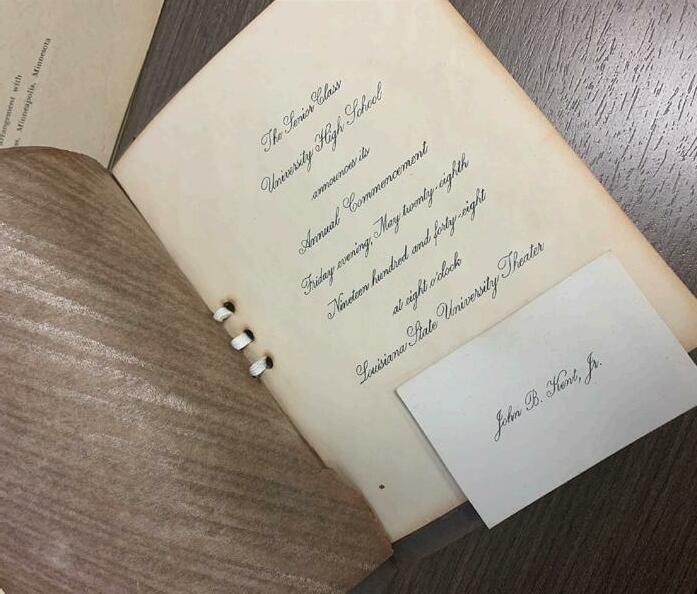 arrangement with
Minneapolis, Minnesota
The Senior Class
University High School
announces its
Annual Commencement
Friday evening, May twenty-eighth
Nineteen hundred and forty-eight
at eight o'clock
Louisiana State University Theater
John B. Kent, Jr.